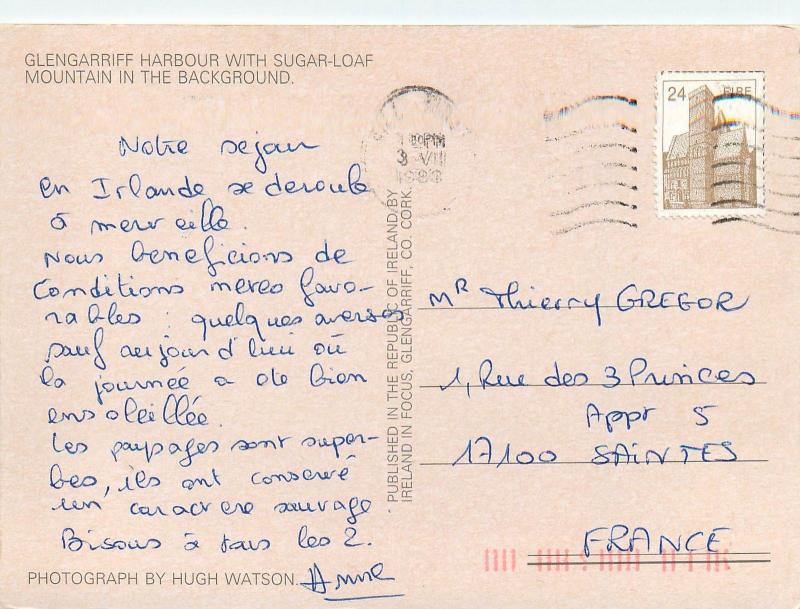 GLENGARRIFF HARBOUR WITH SUGAR-LOAF
MOUNTAIN IN THE BACKGROUND.
24 EIRE
PM
3 VII
1983
Notre sejour
en Irlande se deroule
à merveille.
Nous beneficions de
Conditions meteo favo-
rables : quelques averses
sauf aujourd'hui où
la journée a ete bien
ensoleillée.
Les paysages sont super-
bes, ils ont conservé
un caractere sauvage
Bisous à tous les 2.
Anne
PHOTOGRAPH BY HUGH WATSON.
PUBLISHED IN THE REPUBLIC OF IRELAND BY
IRELAND IN FOCUS, GLENGARRIFF, CO. CORK.
Mr Thierry GREGOR
1, Rue des 3 Princes
Appt 5
17100 SAINTES
FRANCE